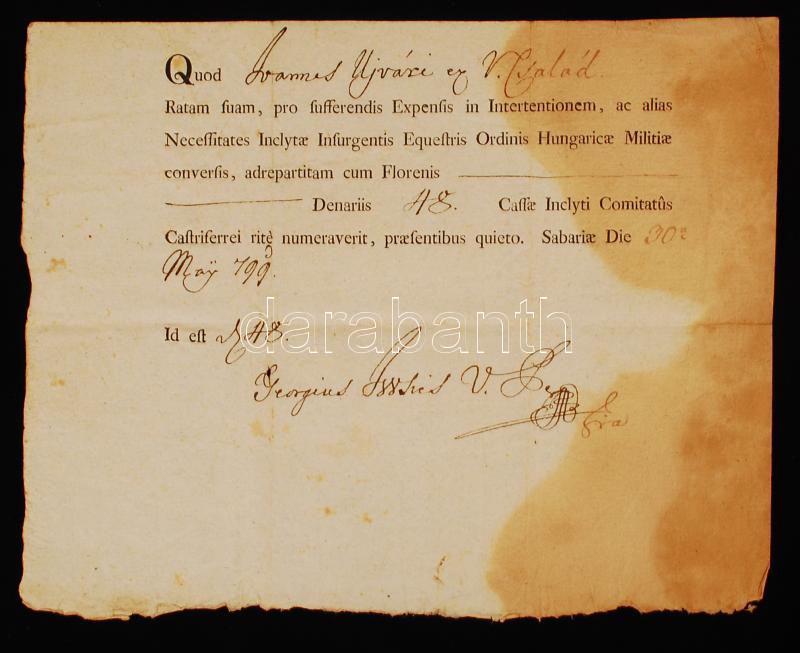 Quod Joannes Ujvári ex V. Család.
Ratam ſuam, pro ſufferendis Expenſis in Intertentionem, ac alias
Neceſſitates Inclytæ Inſurgentis Equeſtris Ordinis Hungaricæ Militiæ
converſis, adrepartitam cum Florenis
Denariis 48. Caſſæ Inclyti Comitatûs
Caſtriferrei ritè numeraverit, præſentibus quieto. Sabariæ Die 30ª
May 799.
Id eſt d 48.
darabanth
Georgius V.